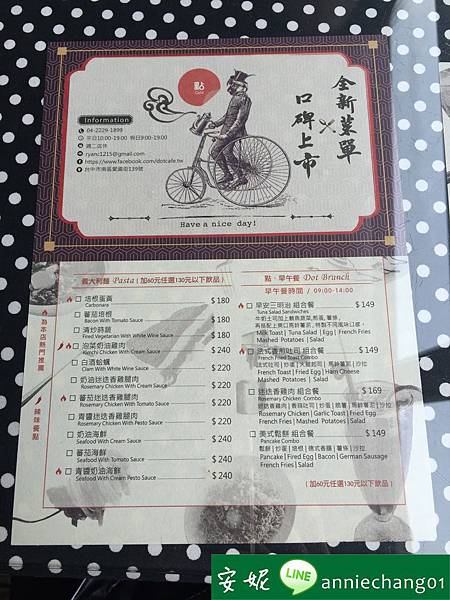 點
Café
全新菜單
×
口碑上市
Information
04-2229-1899
平日10:00-19:00 假日9:00-19:00
週二店休
ryanc1215@gmail.com
https://www.facebook.com/dotcafe.tw
台中市南區愛國街139號
Have a nice day!
為本店熱門推薦
辣味餐點
義大利麵 Pasta (加60元任選130元以下飲品)
培根蛋黃 $180
Carbonara
蕃茄培根 $180
Bacon With Tomato Sauce
清炒時蔬 $180
Fried Vegetarian With White Wine Sauce
泡菜奶油雞肉 $240
Kimchi Chicken With Cream Sauce
白酒蛤蠣 $240
Clam With White Wine Sauce
奶油迷迭香雞腿肉 $220
Rosemary Chicken With Cream Sauce
蕃茄迷迭香雞腿肉 $220
Rosemary Chicken With Tomato Sauce
青醬迷迭香雞腿肉 $220
Rosemary Chicken With Pesto Sauce
奶油海鮮 $240
Seafood With Cream Sauce
蕃茄海鮮 $240
Seafood With Tomato Sauce
青醬奶油海鮮 $240
Seafood With Cream Pesto Sauce
點‧早午餐 Dot Brunch
早午餐時間 / 09:00-14:00
早安三明治 組合餐 $149
Tuna Salad Sandwiches
Milk Toast | Tuna Salad | Egg | French Fries
Mashed Potatoes | Salad
法式香煎吐司 組合餐 $149
French Fried Toast Combo
法式吐司 | 炒蛋 | 火腿起司 | 馬鈴薯泥 | 沙拉
French Toast | Fried Egg | Ham Cheese
Mashed Potatoes | Salad
迷迭香雞肉 組合餐 $169
Rosemary Chicken Combo
迷迭香雞肉 | 香蒜吐司 | 炒蛋 | 脆薯 | 馬鈴薯泥 | 沙拉
Rosemary Chicken | Garlic Toast | Fried Egg
French Fries | Mashed Potatoes | Salad
美式鬆餅 組合餐 $149
Pancake Combo
鬆餅 | 炒蛋 | 培根 | 德式香腸 | 薯條 | 沙拉
Pancake | Fried Egg | Bacon | German Sausage
French Fries | Salad
(加60元任選130元以下飲品)
安妮 LINE anniechang01